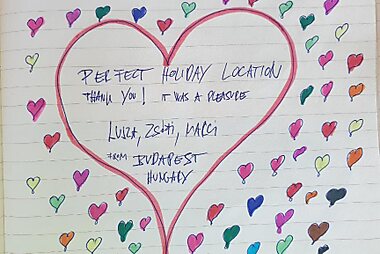 PERFECT HOLIDAY LOCATION
THANK YOU! IT WAS A PLEASURE
LUIZA, ZSOTI, MARCI
FROM BUDAPEST
HUNGARY